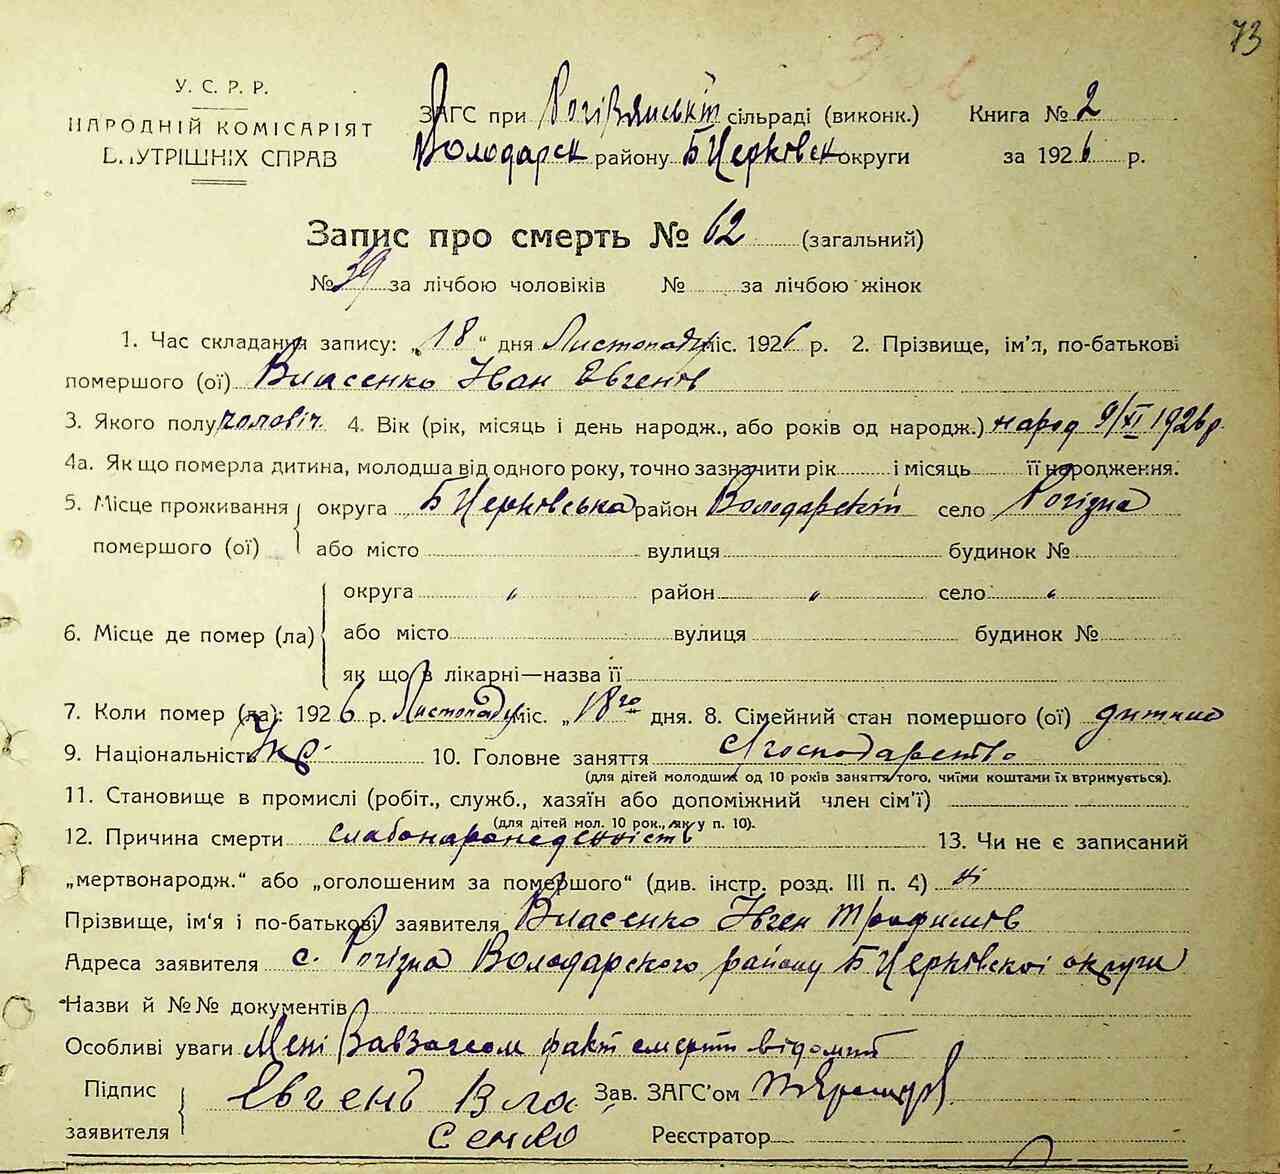 73
У. С. Р. Р.
НАРОДНІЙ КОМІСАРІЯТ
ВНУТРІШНІХ СПРАВ
ЗАГС при Рогізянській сільраді (виконк.)
Володарськ району БЦерківськ округи
Книга № 2
за 1926 р.
Запис про смерть № 62 (загальний)
№ 39 за лічбою чоловіків № за лічбою жінок
1. Час складання запису: „18“ дня Листопаду міс. 1926 р. 2. Прізвище, ім’я, по-батькові
помершого (ої) Власенко Іван Евгенів
3. Якого полу чоловіч 4. Вік (рік, місяць і день народж., або років од народж.) народ 9/XI 1926 р.
4а. Як що померла дитина, молодша від одного року, точно зазначити рік і місяць її народження.
5. Місце проживання помершого (ої) округа БЦерківська район Володарській село Рогізна
або місто вулиця будинок №
6. Місце де помер (ла) округа „ район „ село „
або місто вулиця будинок №
як що в лікарні—назва її
7. Коли помер (ла): 1926 р. Листопаду міс. „18го дня. 8. Сімейний стан помершого (ої) дитина
9. Національність Укр. 10. Головне заняття с/господарство
(для дітей молодших од 10 років заняття того, чиїми коштами їх втримується).
11. Становище в промислі (робіт., служб., хазяїн або допоміжний член сім’ї)
(для дітей мол. 10 рок., як у п. 10).
12. Причина смерти слабонароженність 13. Чи не є записаний
„мертвонародж.“ або „оголошеним за помершого“ (див. інстр. розд. III п. 4) ні
Прізвище, ім‘я і по-батькові заявителя Власенко Івген Трофимів
Адреса заявителя с. Рогізна Володарского району БЦерківскоі округи
Назви й №№ документів
Особливі уваги Мені ЗавЗагсом факт смерти відомий
Підпис заявителя Евгень Вла
сенко
Зав. ЗАГС’ом
Реєстратор